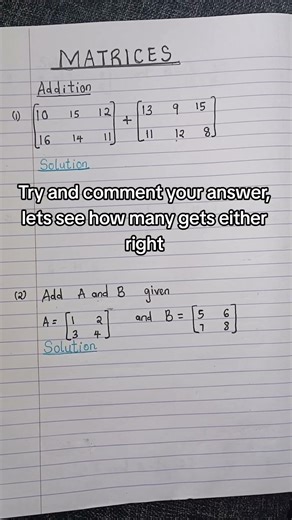 MATRICES
Addition
(1) [10 15 12] + [13 9 15]
[16 14 11] [11 12 8]
Solution
Try and comment your answer,
lets see how many gets either
right
(2) Add A and B given
A = [1 2] and B = [5 6]
[3 4] [7 8]
Solution